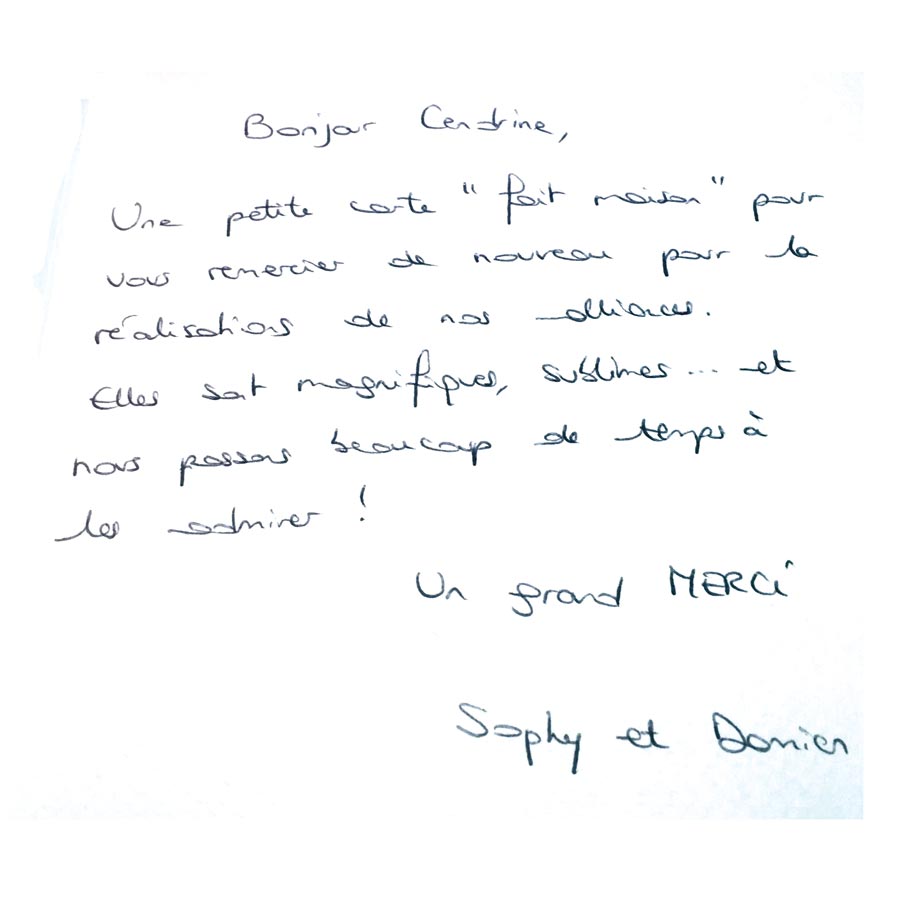 Bonjour Cendrine,
Une petite carte "fait maison" pour
vous remercier de nouveau pour la
réalisations de nos alliances.
Elles sont magnifiques, sublimes... et
nous passons beaucoup de temps à
les admirer !
Un grand MERCi
Sophy et Damien